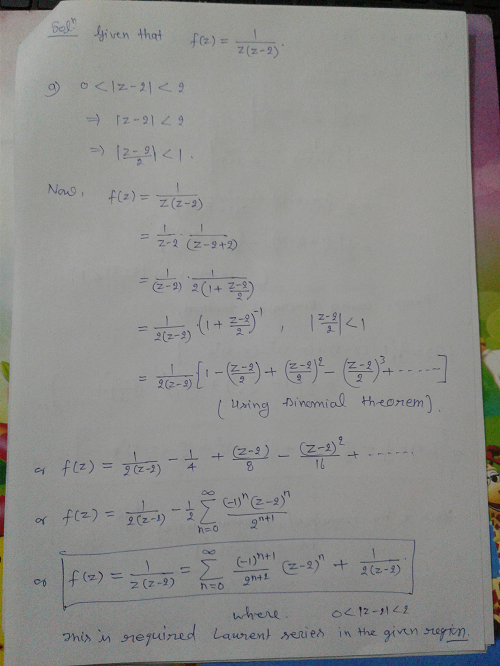 Solⁿ Given that f(z) = 1/(z(z-2)).
a) 0 < |z-2| < 2
⇒ |z-2| < 2
⇒ |(z-2)/2| < 1.
Now, f(z) = 1/(z(z-2))
= 1/(z-2) · 1/(z-2+2)
= 1/(z-2) · 1/(2(1 + (z-2)/2))
= 1/(2(z-2)) · (1 + (z-2)/2)^-1 , |(z-2)/2| < 1
= 1/(2(z-2)) [1 - ((z-2)/2) + ((z-2)/2)^2 - ((z-2)/2)^3 + ......]
(Using Binomial theorem).
or f(z) = 1/(2(z-2)) - 1/4 + (z-2)/8 - (z-2)^2/16 + ......
or f(z) = 1/(2(z-2)) - 1/2 ∑_{n=0}^{∞} (-1)^n (z-2)^n / 2^{n+1}
or f(z) = 1/(z(z-2)) = ∑_{n=0}^{∞} (-1)^{n+1}/2^{n+2} (z-2)^n + 1/(2(z-2)).
where. 0 < |z-2| < 2
This is required Laurent series in the given region.